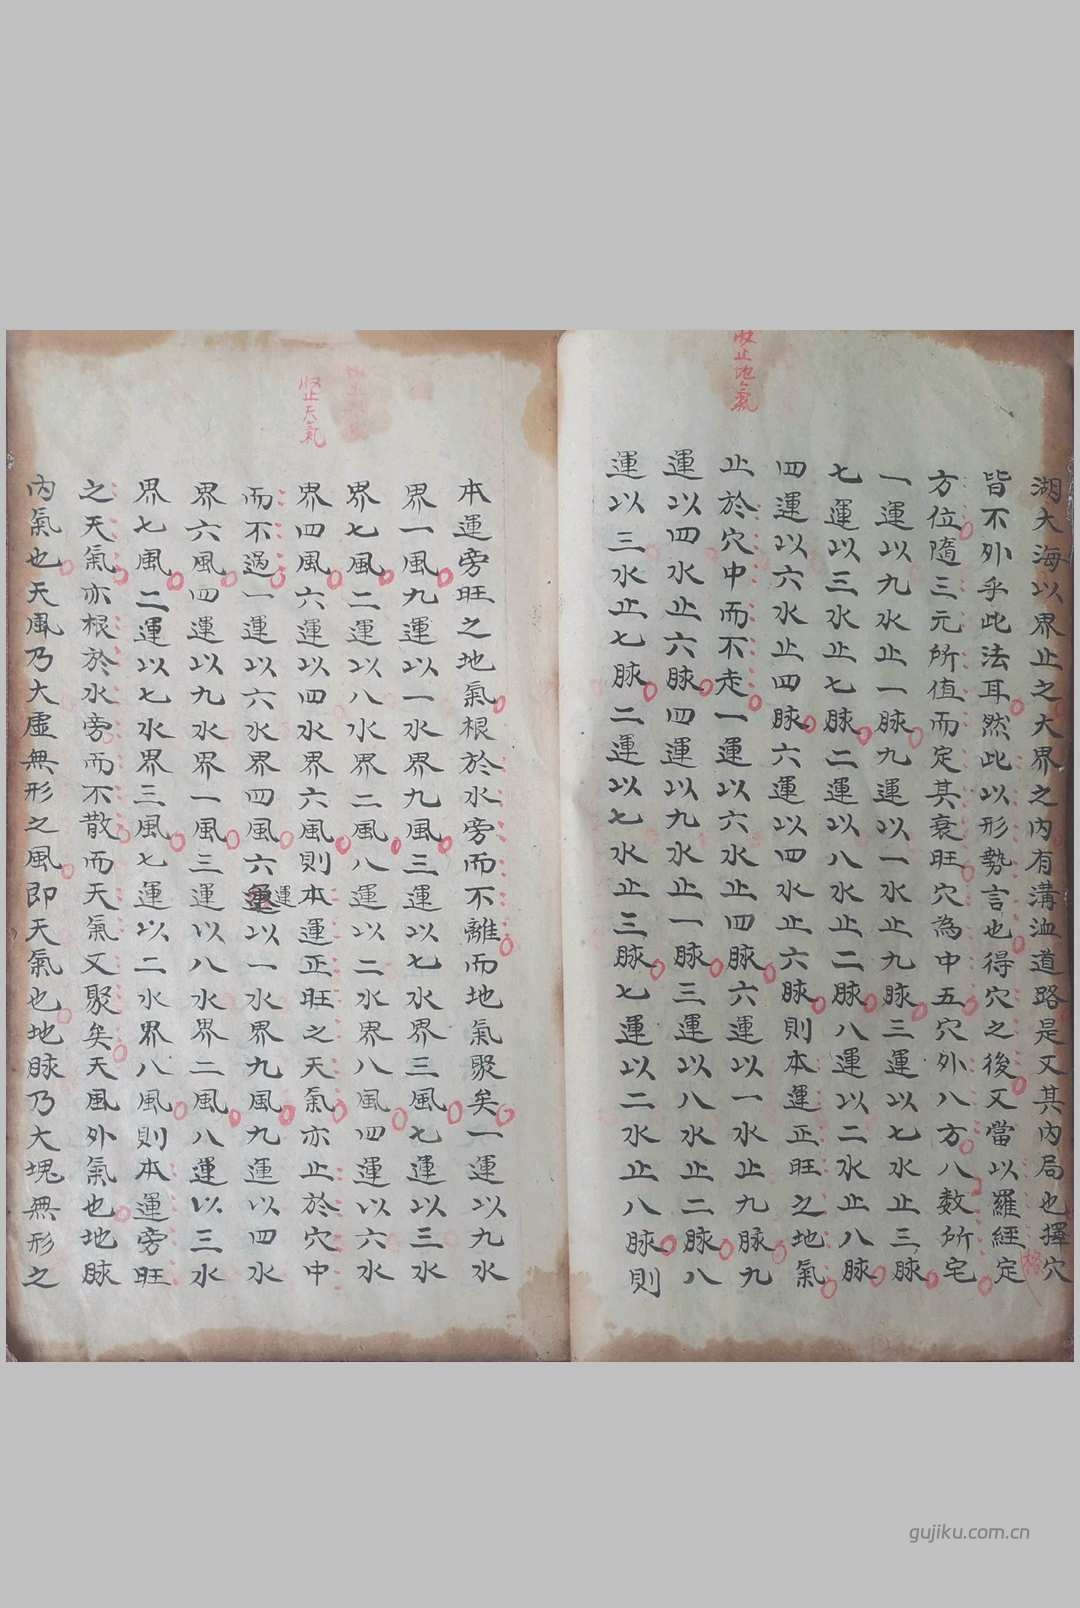 收止地氣
湖大海以界止之大界之內有溝洫道路是又其內局也擇穴
皆不外乎此法耳然此以形勢言也得穴之後又當以羅經定
格
方位隨三元所值而定其衰旺穴為中五穴外八方八数所宅
一運以九水止一脉九運以一水止九脉三運以七水止三脉
七運以三水止七脉二運以八水止二脉八運以二水止八脉
四運以六水止四脉六運以四水止六脉則本運正旺之地氣
止於穴中而不走一運以六水止四脉六運以一水止九脉九
運以四水止六脉四運以九水止一脉三運以八水止二脉八
運以三水止七脉二運以七水止三脉七運以二水止八脉則
收止天氣
本運旁旺之地氣根於水旁而不離而地氣聚矣一運以九水
界一風九運以一水界九風三運以七水界三風七運以三水
界七風二運以八水界二風八運以二水界八風四運以六水
界四風六運以四水界六風則本運正旺之天氣亦止於穴中
而不過一運以六水界四風六運以一水界九風九運以四水
運
界六風四運以九水界一風三運以八水界二風八運以三水
界七風二運以七水界三風七運以二水界八風則本運旁旺
之天氣亦根於水旁而不散而天氣又聚矣天風外氣也地脉
內氣也天風乃大虛無形之風即天氣也地脉乃大塊無形之
gujiku.com.cn